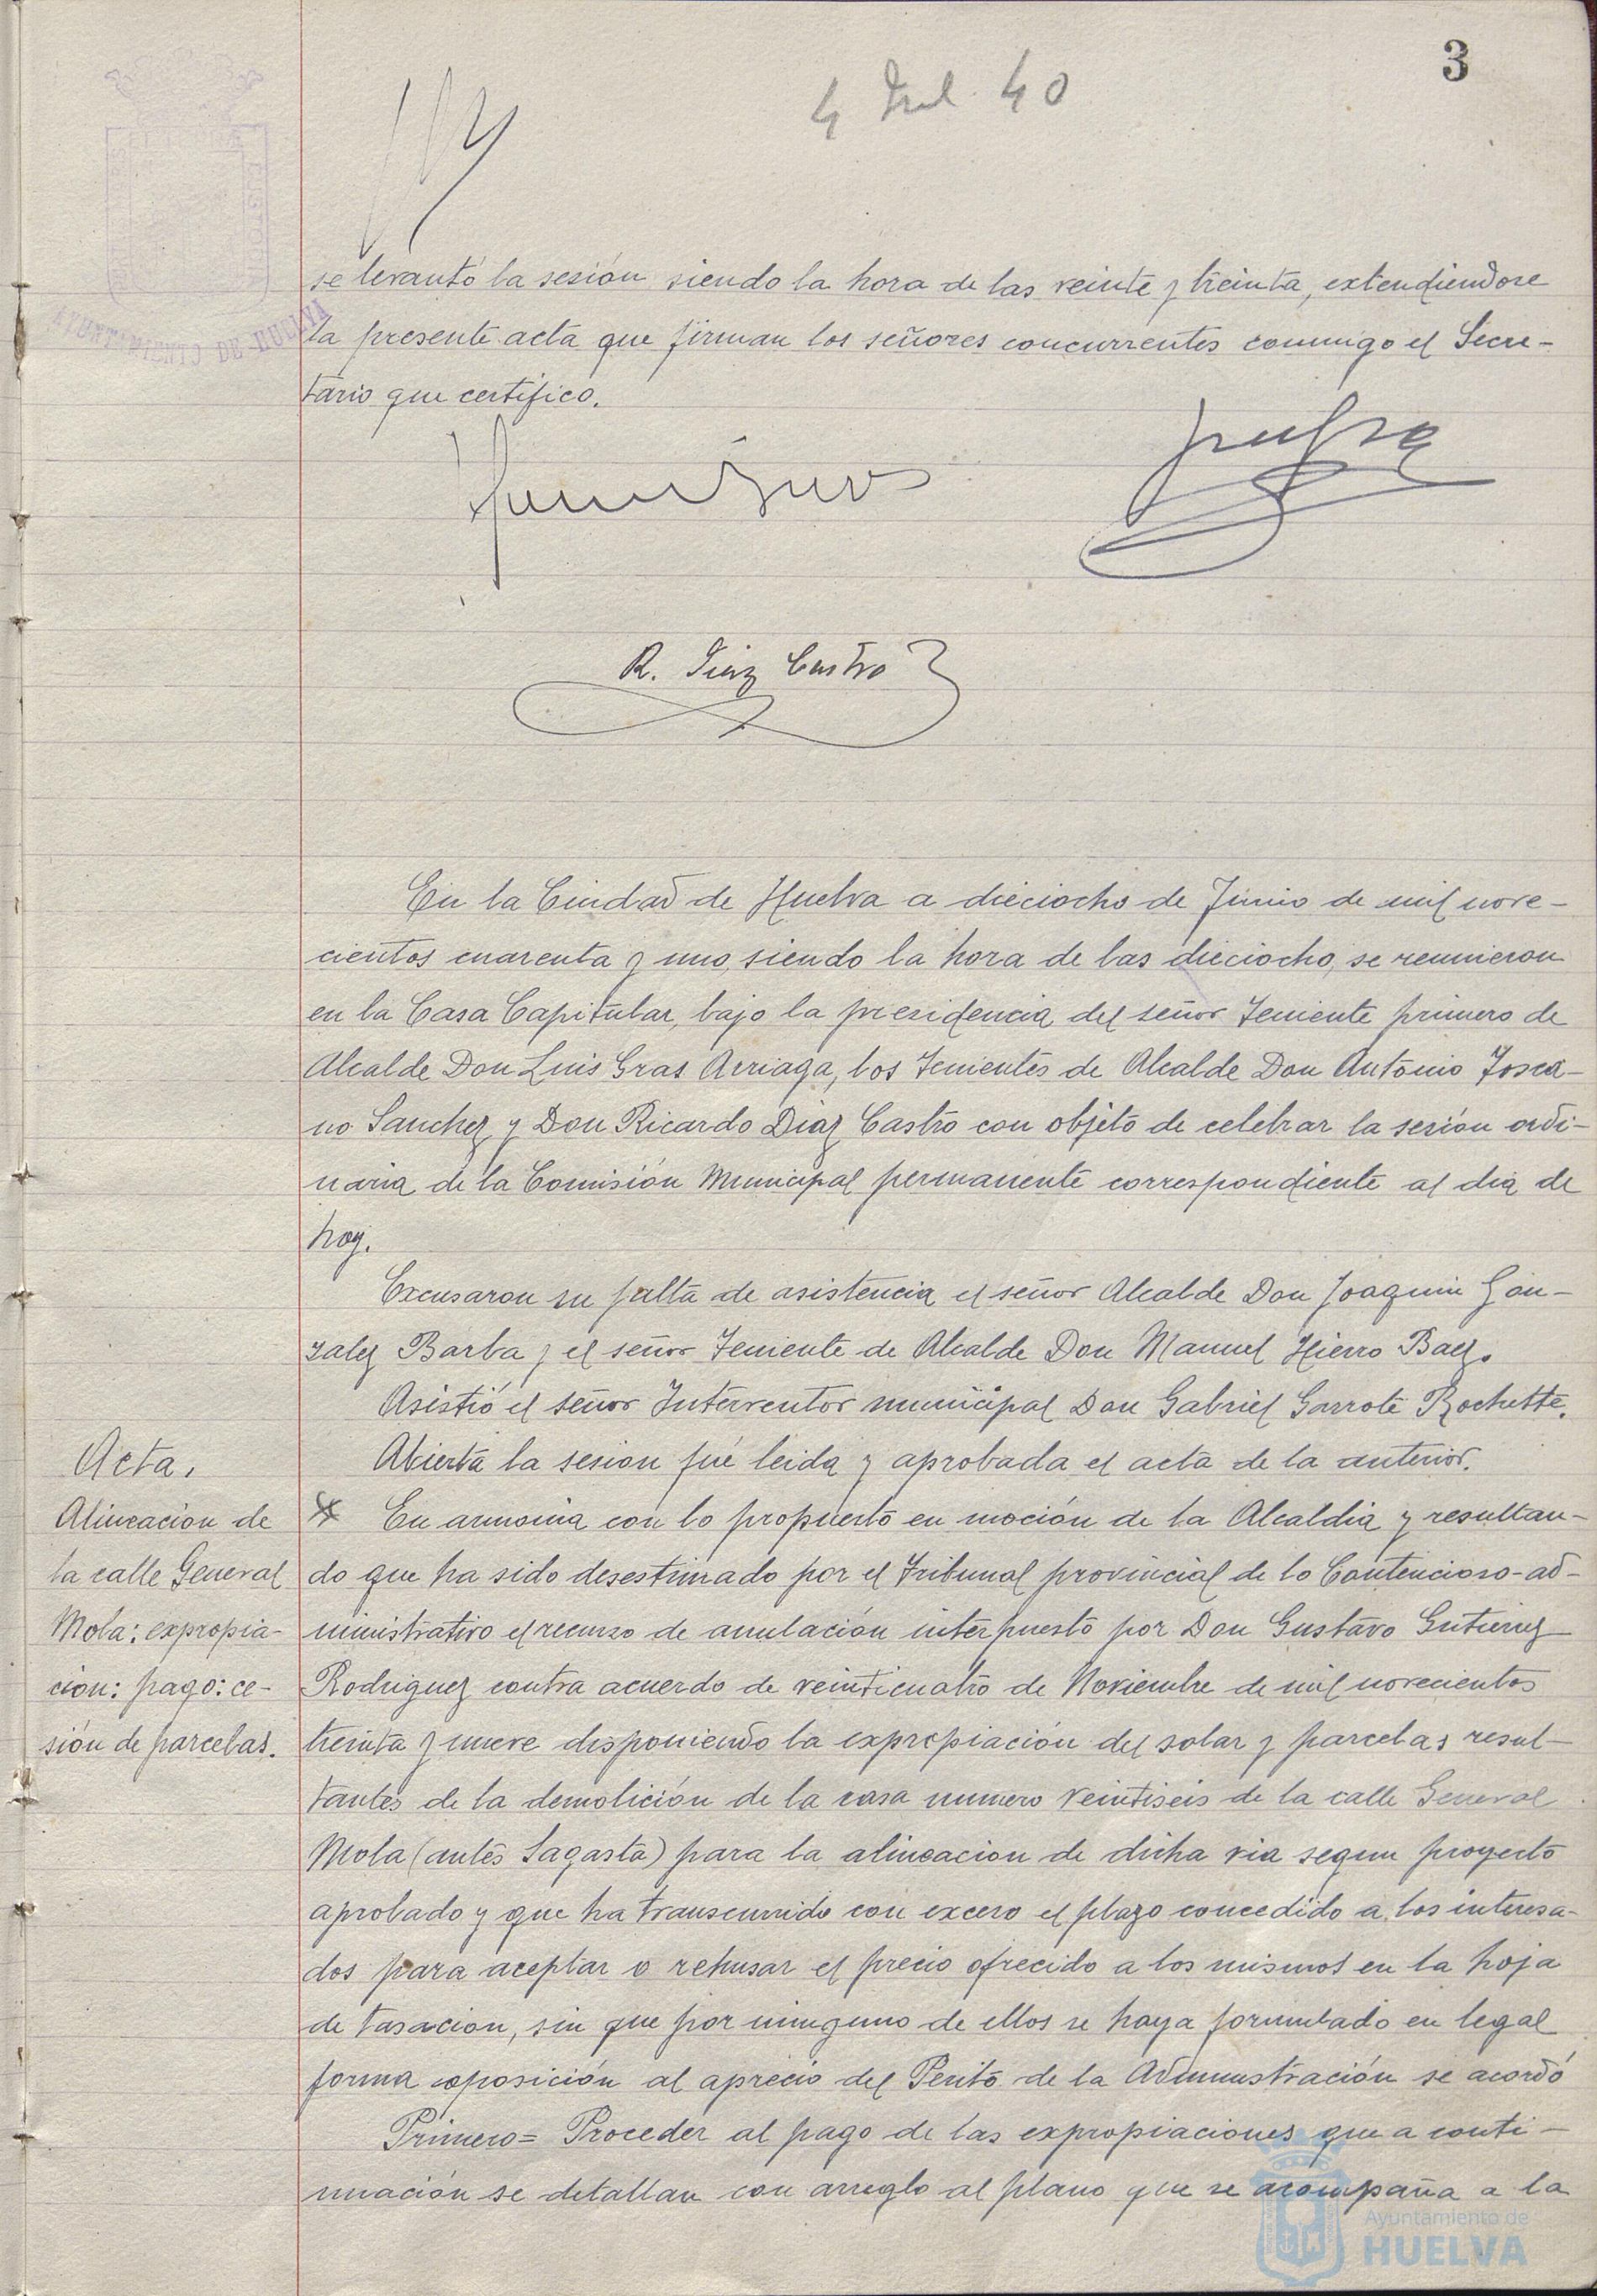 3
4 Jul 40
se levantó la sesión siendo la hora de las veinte y treinta, extendiendose
la presente acta que firman los señores concurrentes conmigo el Secre-
tario que certifico.
R. Diaz Castro
AYUNTAMIENTO DE HUELVA
En la Ciudad de Huelva a dieciocho de Junio de mil nove-
cientos cuarenta y uno, siendo la hora de las dieciocho, se reunieron
en la Casa Capitular, bajo la presidencia del señor Teniente primero de
Alcalde Don Luis Gras Arriaga, los Tenientes de Alcalde Don Antonio Tosca-
no Sanchez y Don Ricardo Diaz Castro con objeto de celebrar la sesión ordi-
naria de la Comisión Municipal permanente correspondiente al dia de
hoy.
Excusaron su falta de asistencia el señor Alcalde Don Joaquin Gon-
zalez Barba y el señor Teniente de Alcalde Don Manuel Hierro Baez.
Asistió el señor Interventor municipal Don Gabriel Garrote Rochette.
Acta.
Abierta la sesion fué leida y aprobada el acta de la anterior.
Alineacion de
la calle General
Mola: expropia-
ción: pago: ce-
sión de parcelas.
En armonia con lo propuesto en moción de la Alcaldia y resultan-
do que ha sido desestimado por el Tribunal provincial de lo Contencioso-ad-
ministrativo el recurso de anulación interpuesto por Don Gustavo Gutierrez
Rodriguez contra acuerdo de veinticuatro de Noviembre de mil novecientos
treinta y nueve disponiendo la expropiación del solar y parcelas resul-
tantes de la demolición de la casa numero veintiseis de la calle General
Mola (antes Sagasta) para la alineacion de dicha via segun proyecto
aprobado y que ha transcurrido con exceso el plazo concedido a los interesa-
dos para aceptar o rehusar el precio ofrecido a los mismos en la hoja
de tasacion, sin que por ninguno de ellos se haya formulado en legal
forma oposición al aprecio del Perito de la Administración se acordó
Primero= Proceder al pago de las expropiaciones que a conti-
nuación se detallan con arreglo al plano que se acompaña a la
Ayuntamiento de
HUELVA